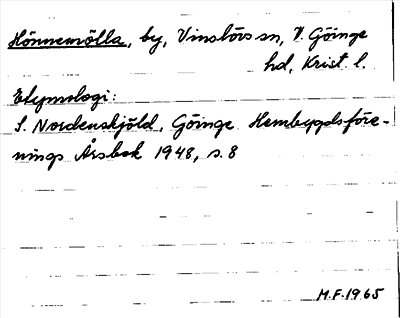 Hönnemölla, by, Vinslövs sn, V. Göinge
hd, Krist. l.
Etymologi:
S. Nordenskjöld, Göinge Hembygdsföre-
nings Årsbok 1948, s. 8
M.F. 1965